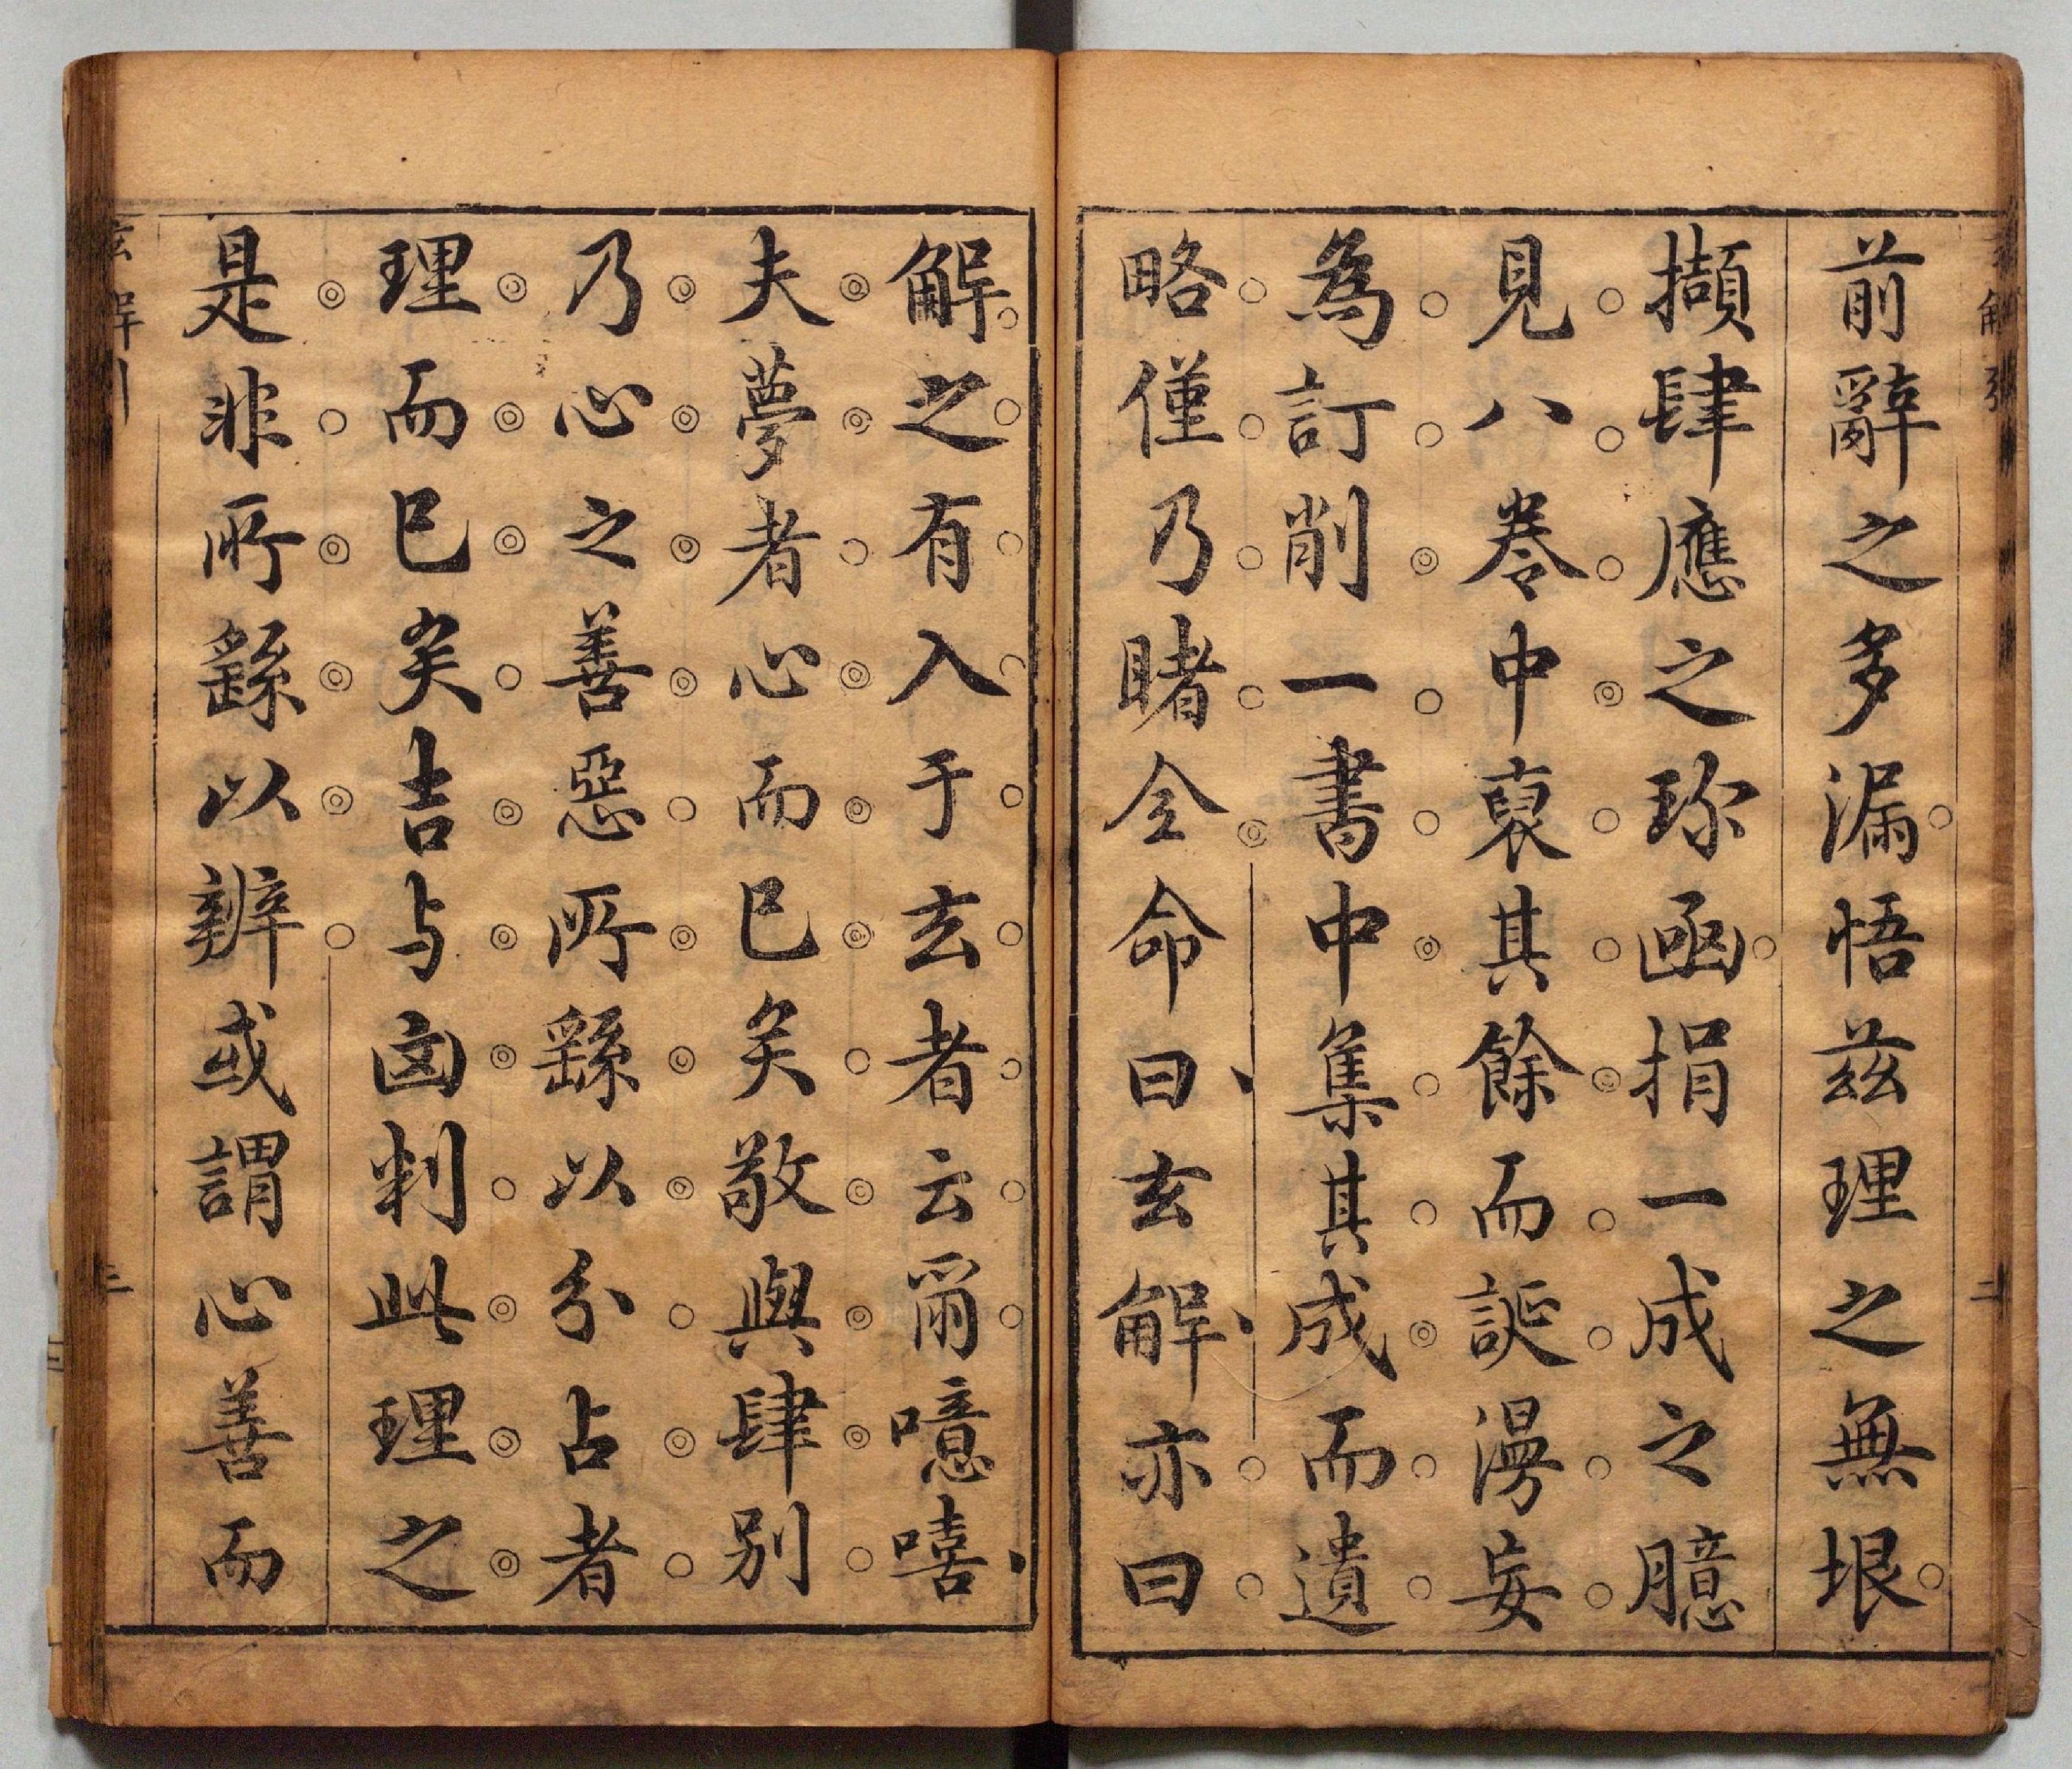 前辭之多漏悟茲理之無垠
擷肆應之珎凾捐一成之臆
見八卷中裒其餘而誕漫妄
為訂削一書中集其成而遺
略僅乃睹全命曰玄解亦曰
解之有入于玄者云爾噫嘻
夫夢者心而已矣敬與肆別
乃心之善惡所繇以分占者
理而已矣吉与囟判此理之
是非所繇以辨或謂心善而
二
三